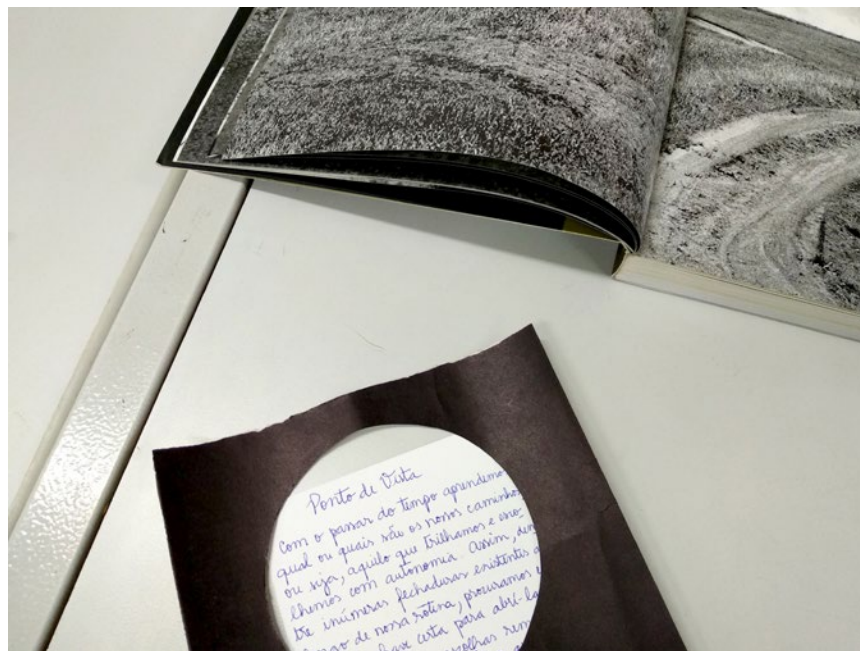 Ponto de Vista
Com o passar do tempo aprendemos
qual ou quais são os nossos caminhos
ou seja, aquilo que trilhamos e esco-
lhemos com autonomia. Assim, den
tre inúmeras fechaduras existentes a
de nossa rotina, procuramos
certa para abri-la